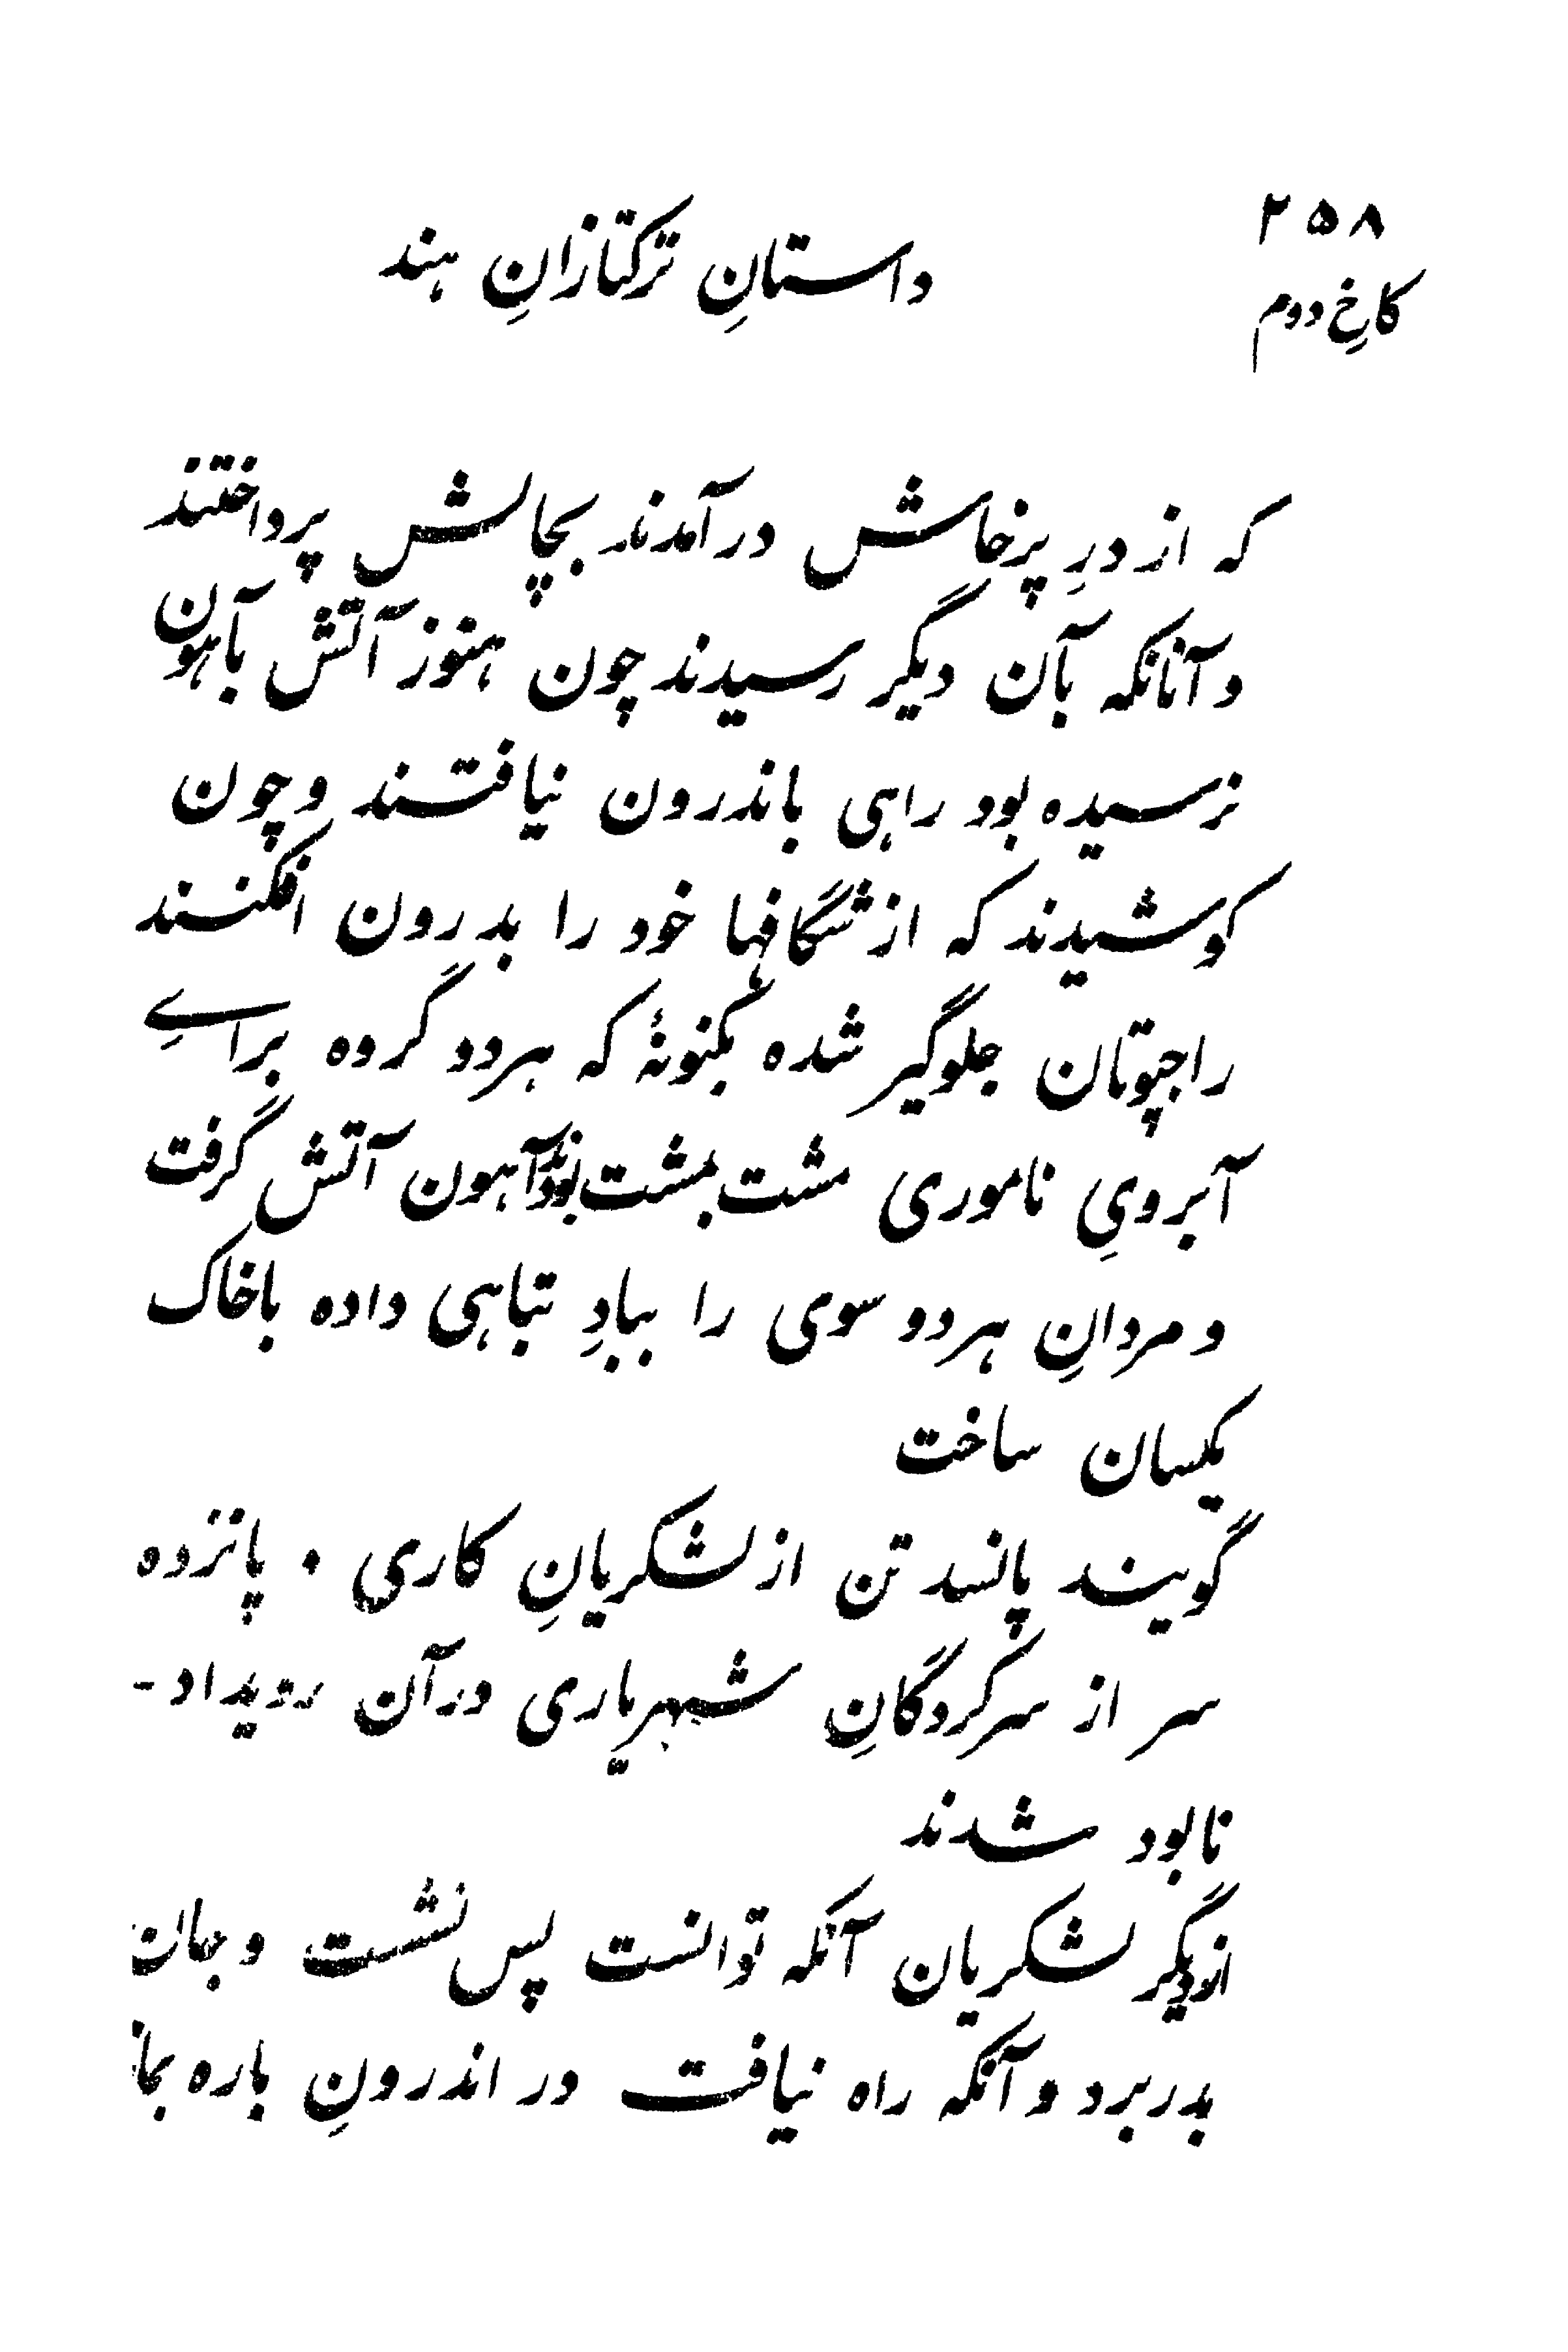 ۲۵۸
داستانِ ترکتازانِ هند
کاخِ دوم
که از درِ پرخاش در آمدند بچالش پرداختند
و آنانکه بآن دیگر رسیدند چون هنوز آتش بآهون
نرسیده بود راهی باندرون نیافتند و چون
کوشیدند که از شگافها خود را بدرون افکنند
راجپوتان جلوگیر شده بگونهٔ که هر دو گروه برایِ
آبرویِ ناموری مشت بمشت بودند آهون آتش گرفت
و مردانِ هر دو سوی را ببادِ تباهی داده با خاک
یکسان ساخت
گویند پانسد تن از لشکریانِ کاری . پانزده
سر از سرکردگانِ شهریاری در آن رویداد -
نابود شدند
از دیگر لشکریان آنکه توانست پس نشست و جان
بدر برد و آنکه راه نیافت در اندرونِ باره